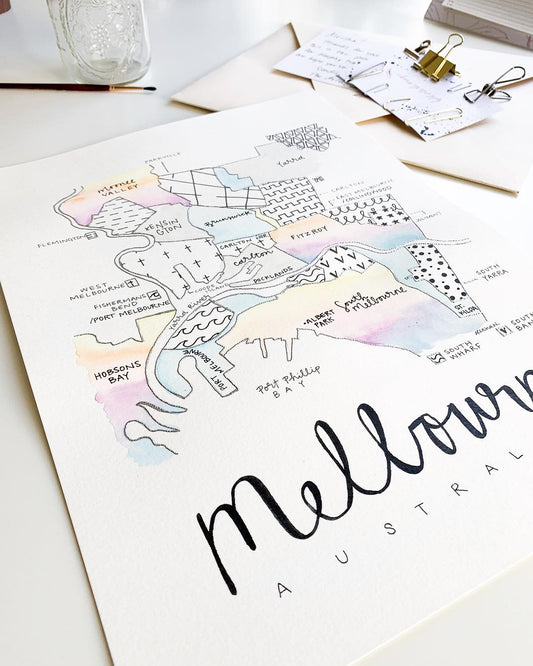 PARKVILLE
Yarra
Moonee
VALLEY
CARLTON
EAST MELBOURNE
COLLINGWOOD
FLEMINGTON
KENSIN
GTON
Brunswick
CARLTON
carlton
FITZROY
WEST
MELBOURNE
FISHERMANS
BEND
/PORT MELBOURNE
DOCKLANDS
Yarra River
SOUTH
YARRA
ST.
KILDA
South
Melbourne
ALBERT
PARK
HOBSONS
BAY
PORT
MELBOURNE
Port Phillip
BAY
SOUTH
WHARF
SOUTH
BAN
Melbourn
AUSTRAL